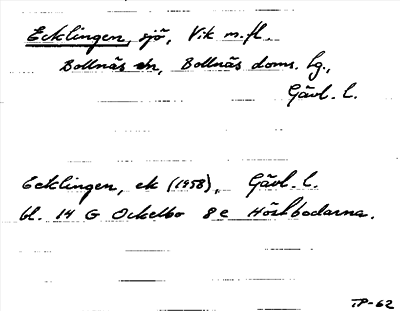 Ecklingen, sjö, Vik m.fl.
Bollnäs sn, Bollnäs doms. lg.,
Gävl. l.
Ecklingen, ek (1958), Gävl. l.
bl. 14 G Ockelbo 8e Höstbodarna.
TP-62